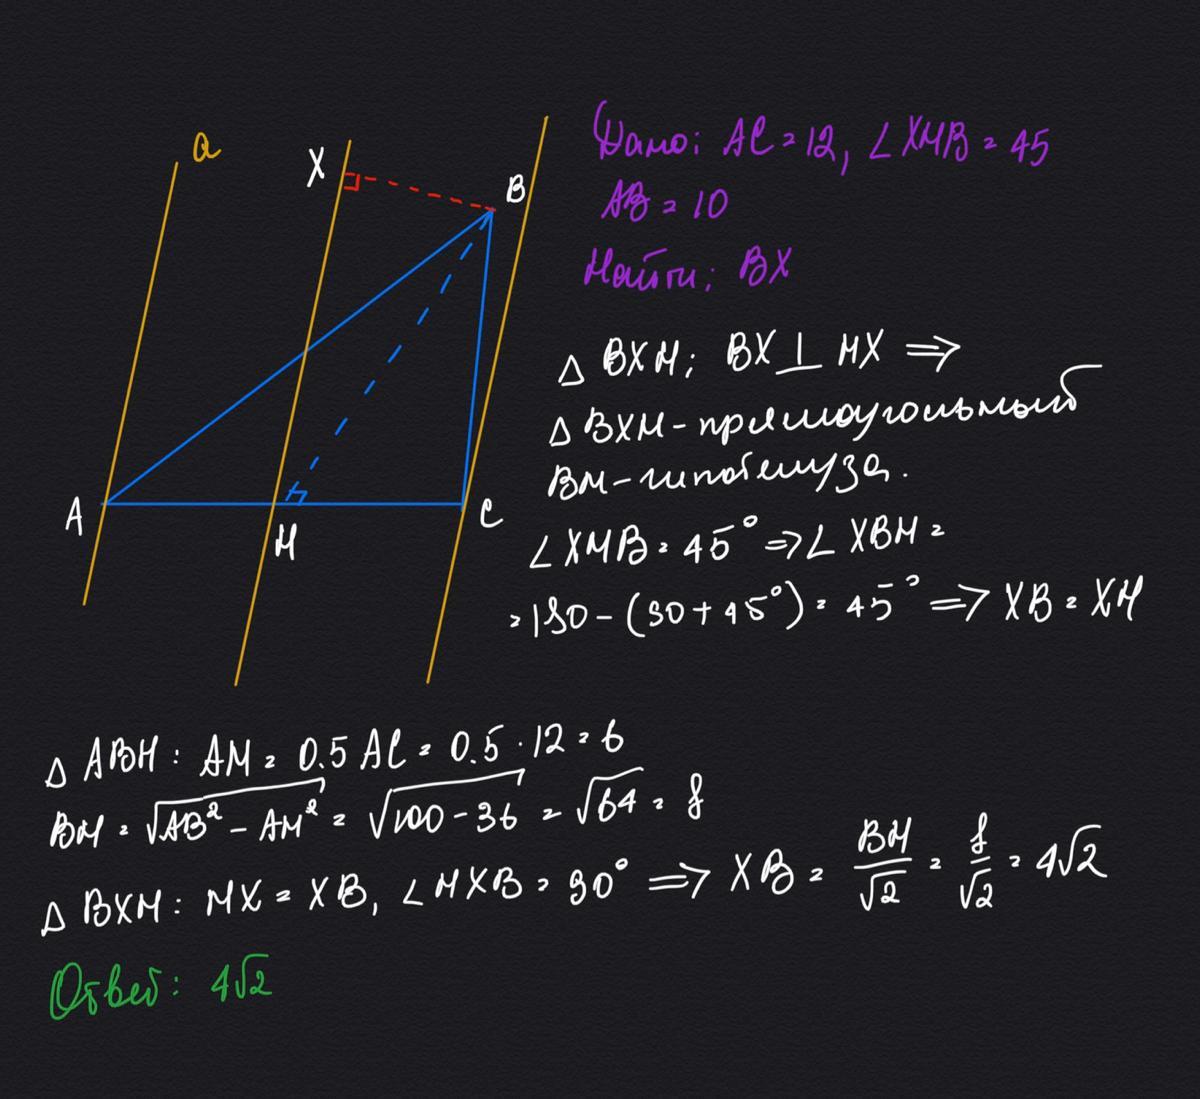 a
X
B
A
M
C
Дано: AC = 12, ∠XMB = 45
AB = 10
Найти: BX
△ BXM: BX ⊥ MX ⇒
△ BXM - прямоугольный
BM - гипотенуза.
∠XMB = 45° ⇒ ∠ XBM =
= 180 - (90 + 45°) = 45° ⇒ XB = XM
△ ABM : AM = 0.5 AC = 0.5 · 12 = 6
BM = √AB² - AM² = √100 - 36 = √64 = 8
△ BXM : MX = XB, ∠MXB = 90° ⇒ XB = BM/√2 = 8/√2 = 4√2
Ответ: 4√2